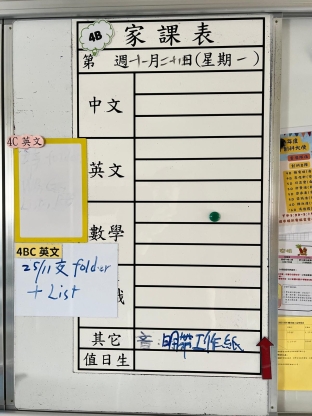 4B
家課表
第 週十一月二十日(星期一)
中文
4C 英文
英文
數學
4BC 英文
25/11 交 folder
+ List
其它 音:明筆工作紙
值日生